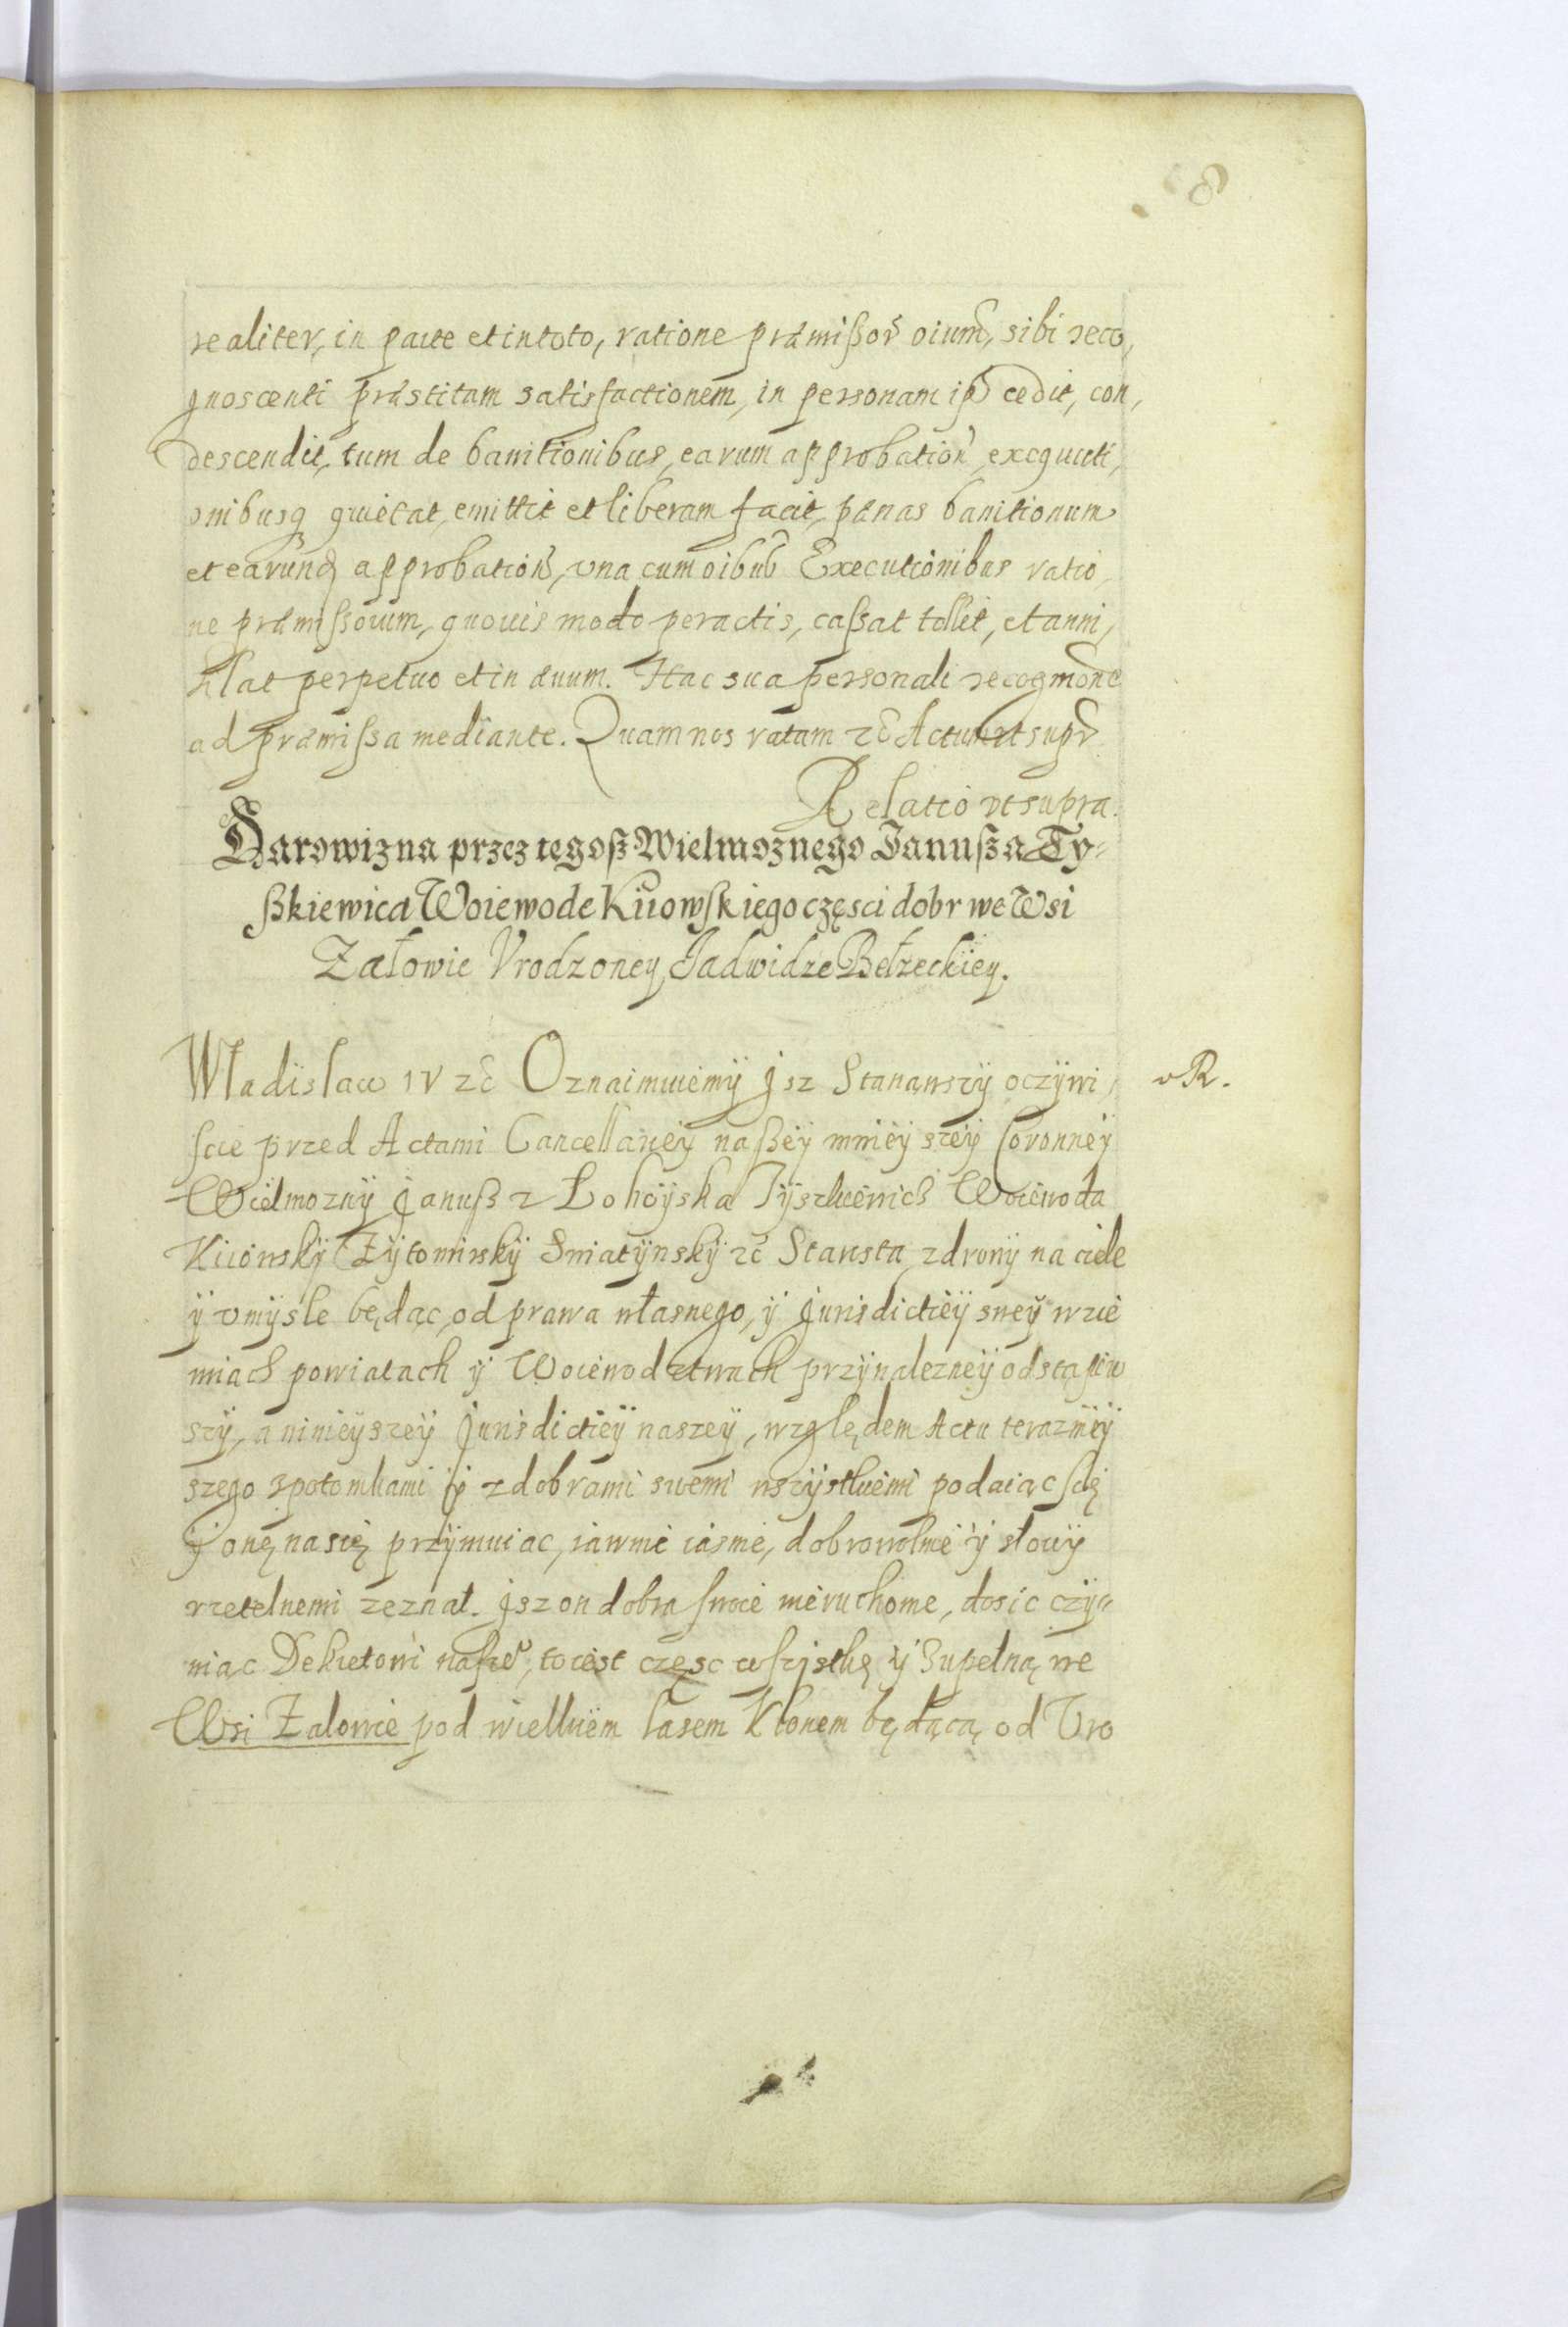 8
realiter, in parte et in toto, ratione præmißor oium, sibi reco,
gnoscenti præstitam satisfactionem, in personam ip cedit, con,
descendit, tum de banitionibus, earum approbation, exequuti,
onibusq quietat, emittit et liberam facit, pænas banitionum
et earunq approbation, vna cum oibus Executionibus ratio,
ne præmissorum, quouis modo peractis, caßat tollit, et anni,
hilat perpetuo et in æuum. Hac sua personali recognone
ad præmißa mediante. Quam nos ratam zc Actum ut supr
Relatio vt supra.
Darowizna przez tegoß Wielmoznego Janußa Ty=
ßkiewica Woiewode Kiiowskiego częsci dobr we Wsi
Załowie Vrodzoney Jadwidze Bełzeckiey.
Władislaw IV zc Oznaimuiemÿ Jsz Stanawszÿ oczÿwi,
scie przed Actami Cancellariey naßeÿ mnieÿszeÿ Coronneÿ
Wielmoznÿ Januß z Łohoÿska Tÿszkiewich Woiewoda
Kiiowskÿ Zÿtomirskÿ Sniatÿnskÿ zc Starosta zdrowÿ na ciele
ÿ vmÿsle będąc, od prawa własnego, ÿ Jurisdictieÿ sweÿ w zie
miach powiatach ÿ Woiewodztwach przÿnalezneÿ odstąpiw
szÿ, a ninieÿszeÿ Jurisdictieÿ naszeÿ, względem Actu teraznieÿ
szego z potomkami ÿ z dobrami swemi wszÿstkiemi podaiąc się
ÿ onę na się przÿmuiac, iawnie iasnie, dobrowolnie ÿ słowÿ
rzetelnemi zeznał. Jsz on dobra swoie nieruchome, dosic czÿ=
niąc Dekretowi naße, to iest częsc wszÿstkę ÿ Zupełną we
Wsi Zalowie pod wielkiem lasem Kłonem będącą od Vro
vR.